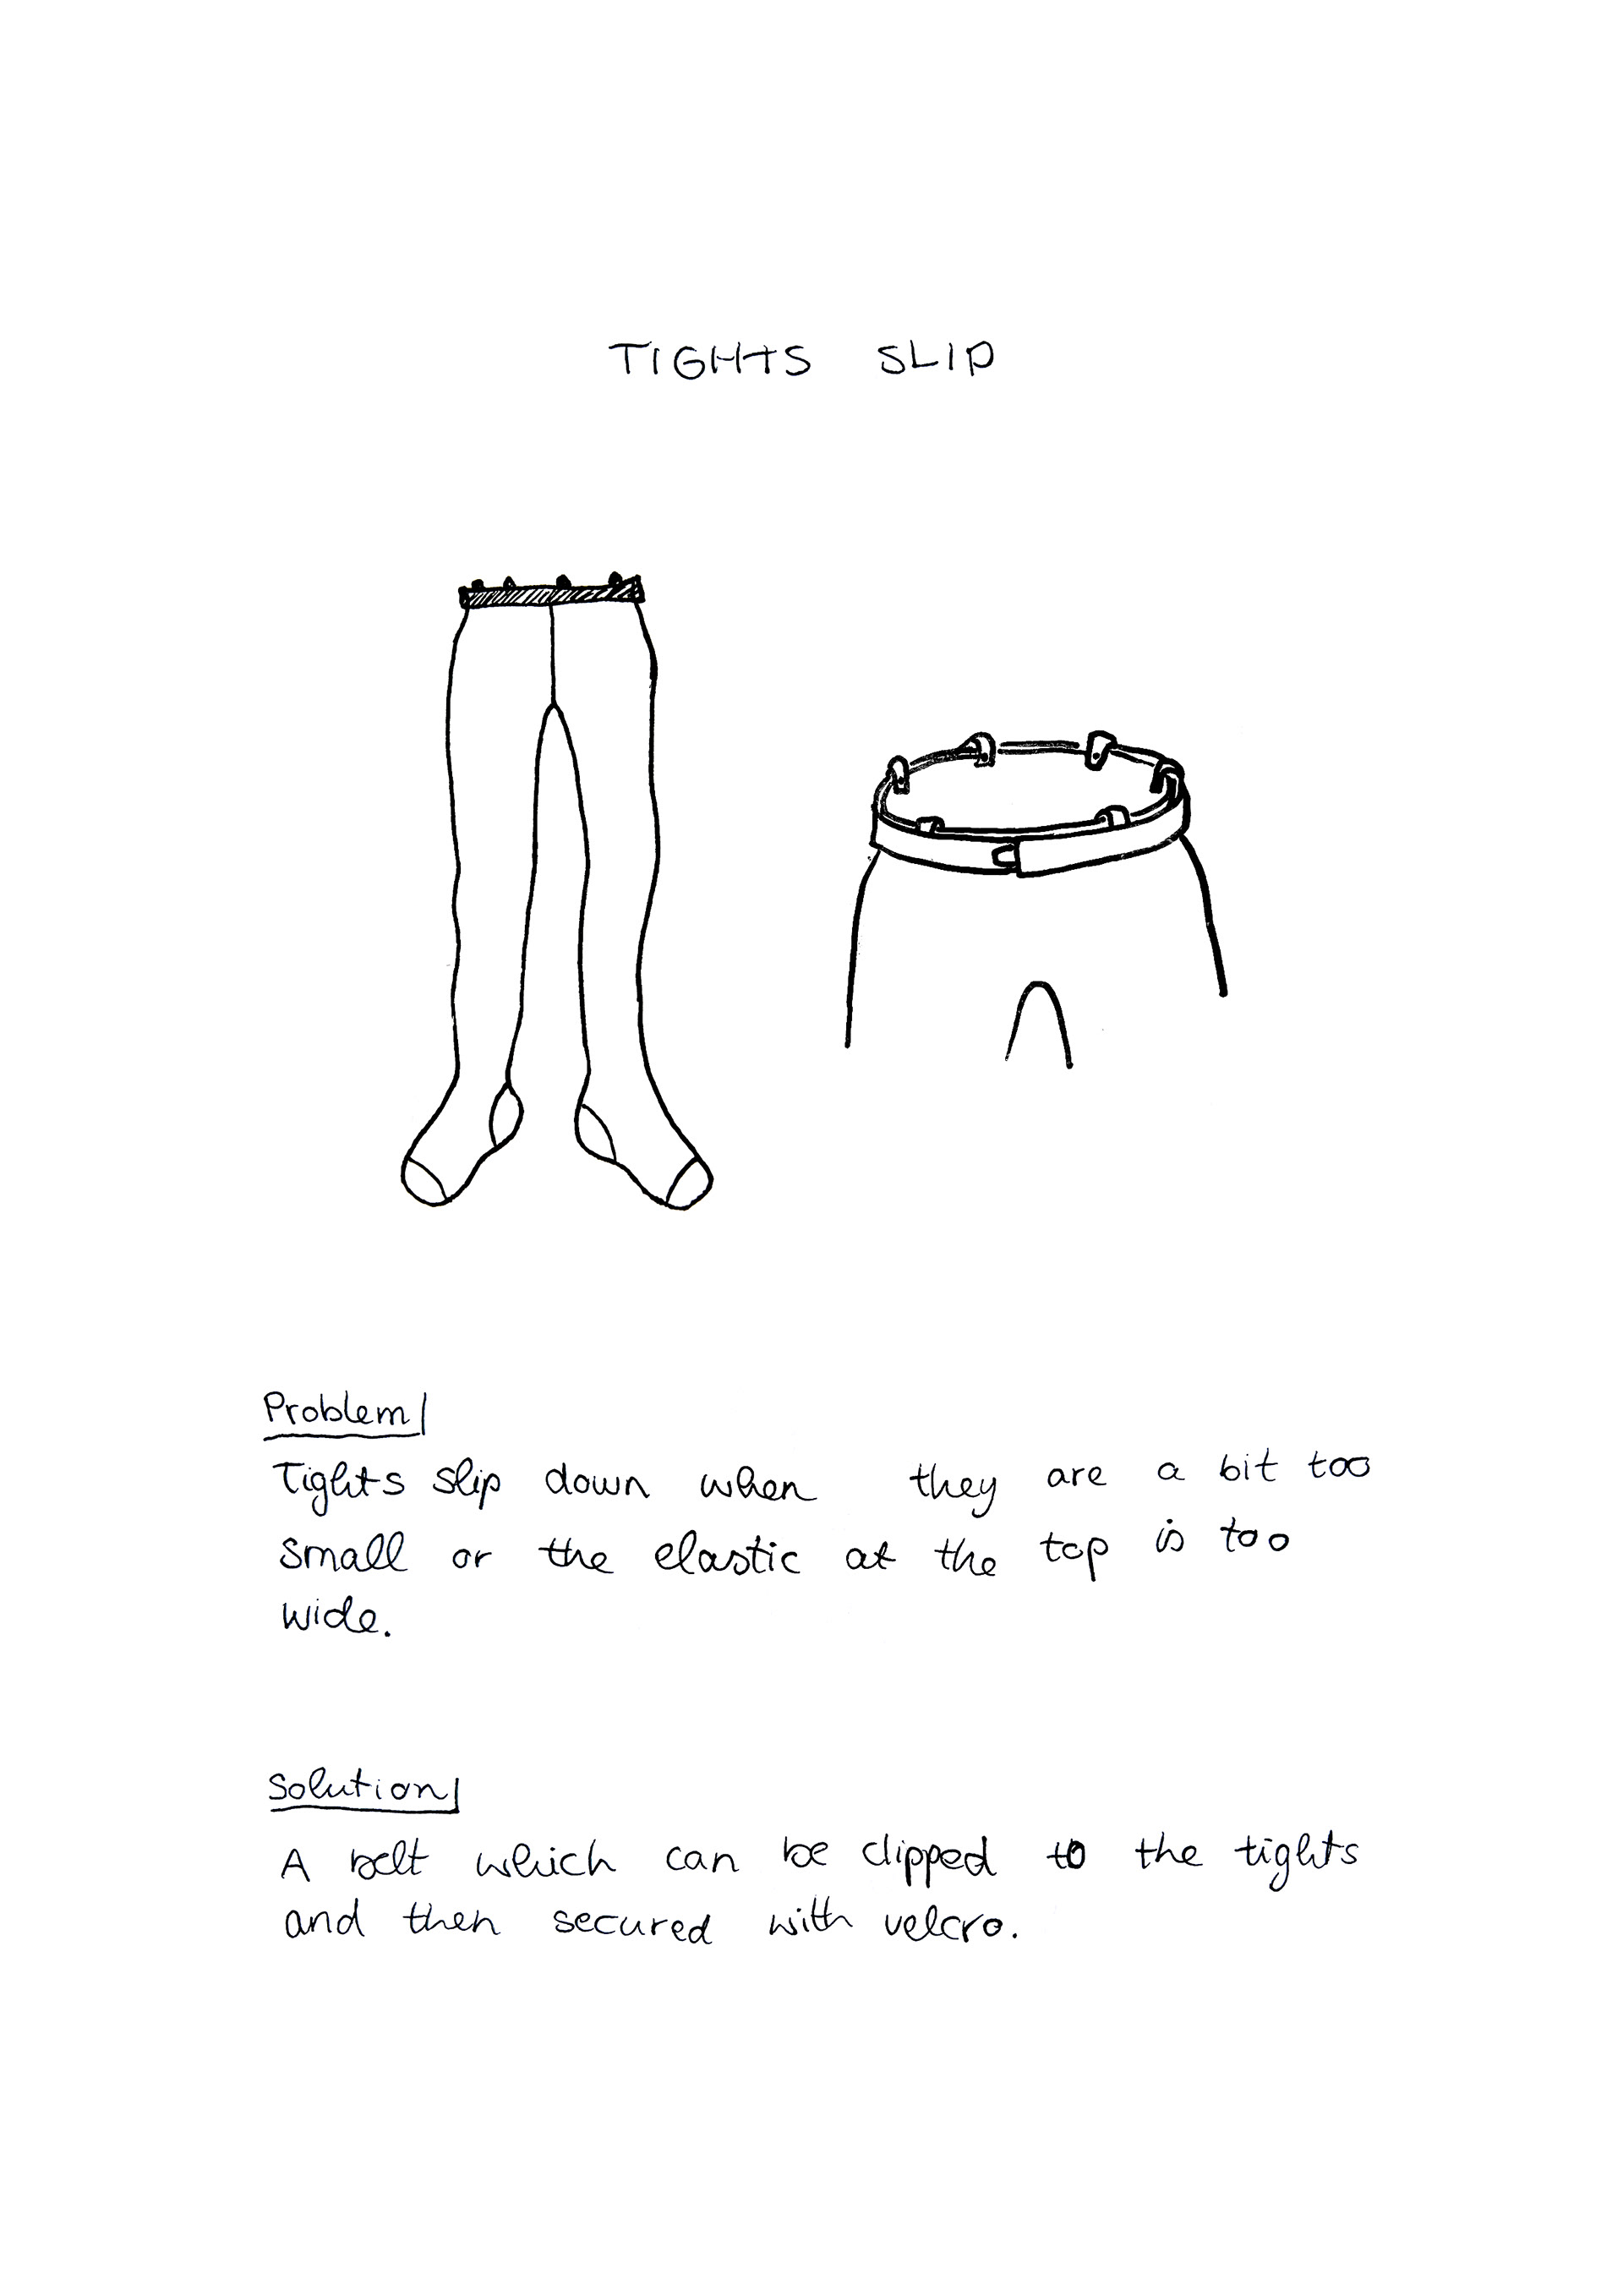 TIGHTS SLIP
Problem
Tights slip down when they are a bit too
small or the elastic at the top is too
wide.
Solution
A belt which can be clipped to the tights
and then secured with velcro.